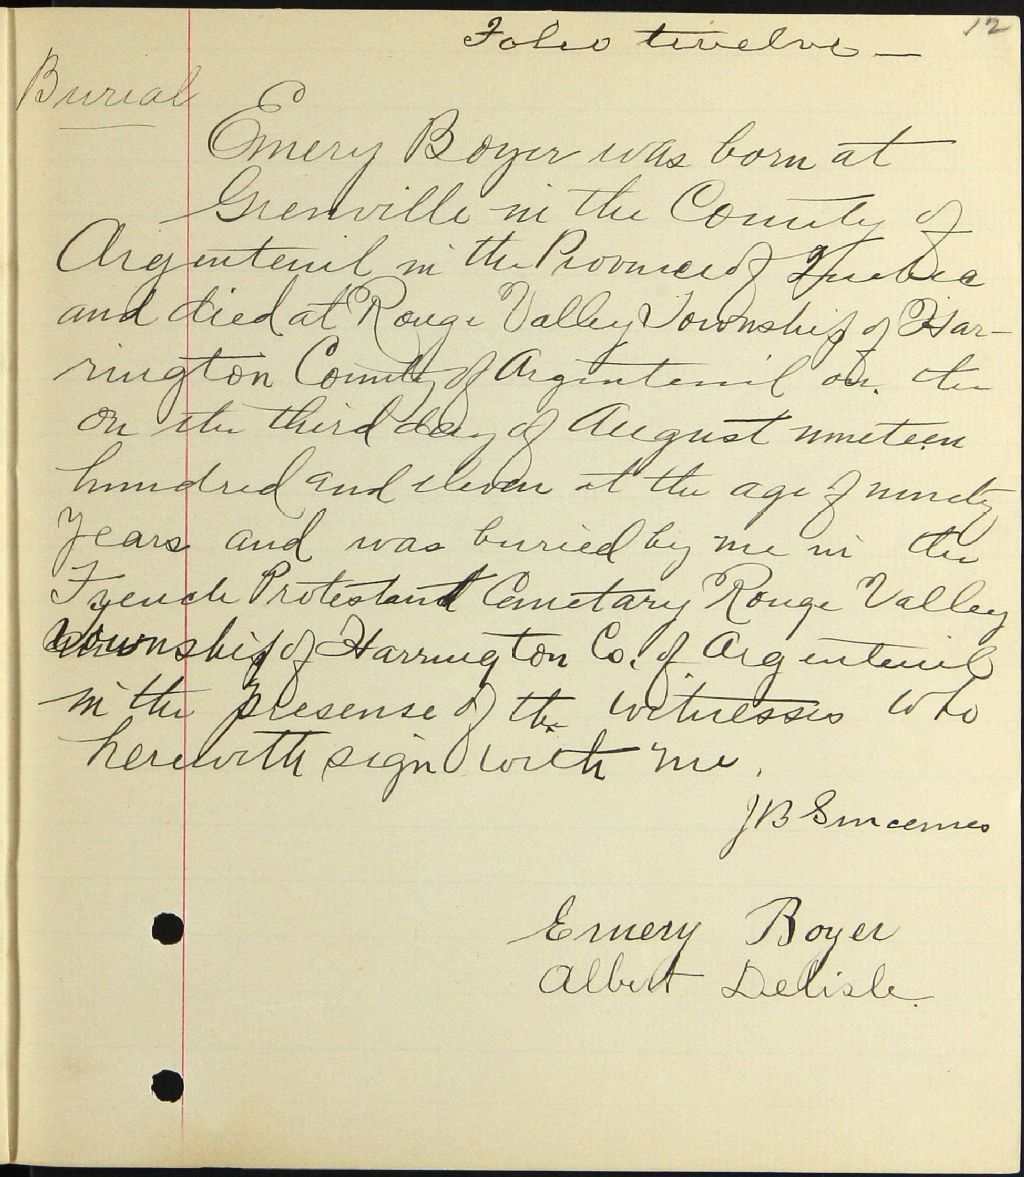 12
Folio twelve —
Burial
Emery Boyer was born at
Grenville in the County of
Argenteuil in the Province of Quebec
and died at Rouge Valley Township of Har-
rington County of Argenteuil on the
on the third day of August nineteen
hundred and eleven at the age of ninety
years and was buried by me in the
French Protestant Cemetary Rouge Valley
Township of Harrington Co. of Argenteuil
in the presense of the witnesses who
herewith sign with me.
JB Sincennes
Emery Boyer
Albert Delisle.